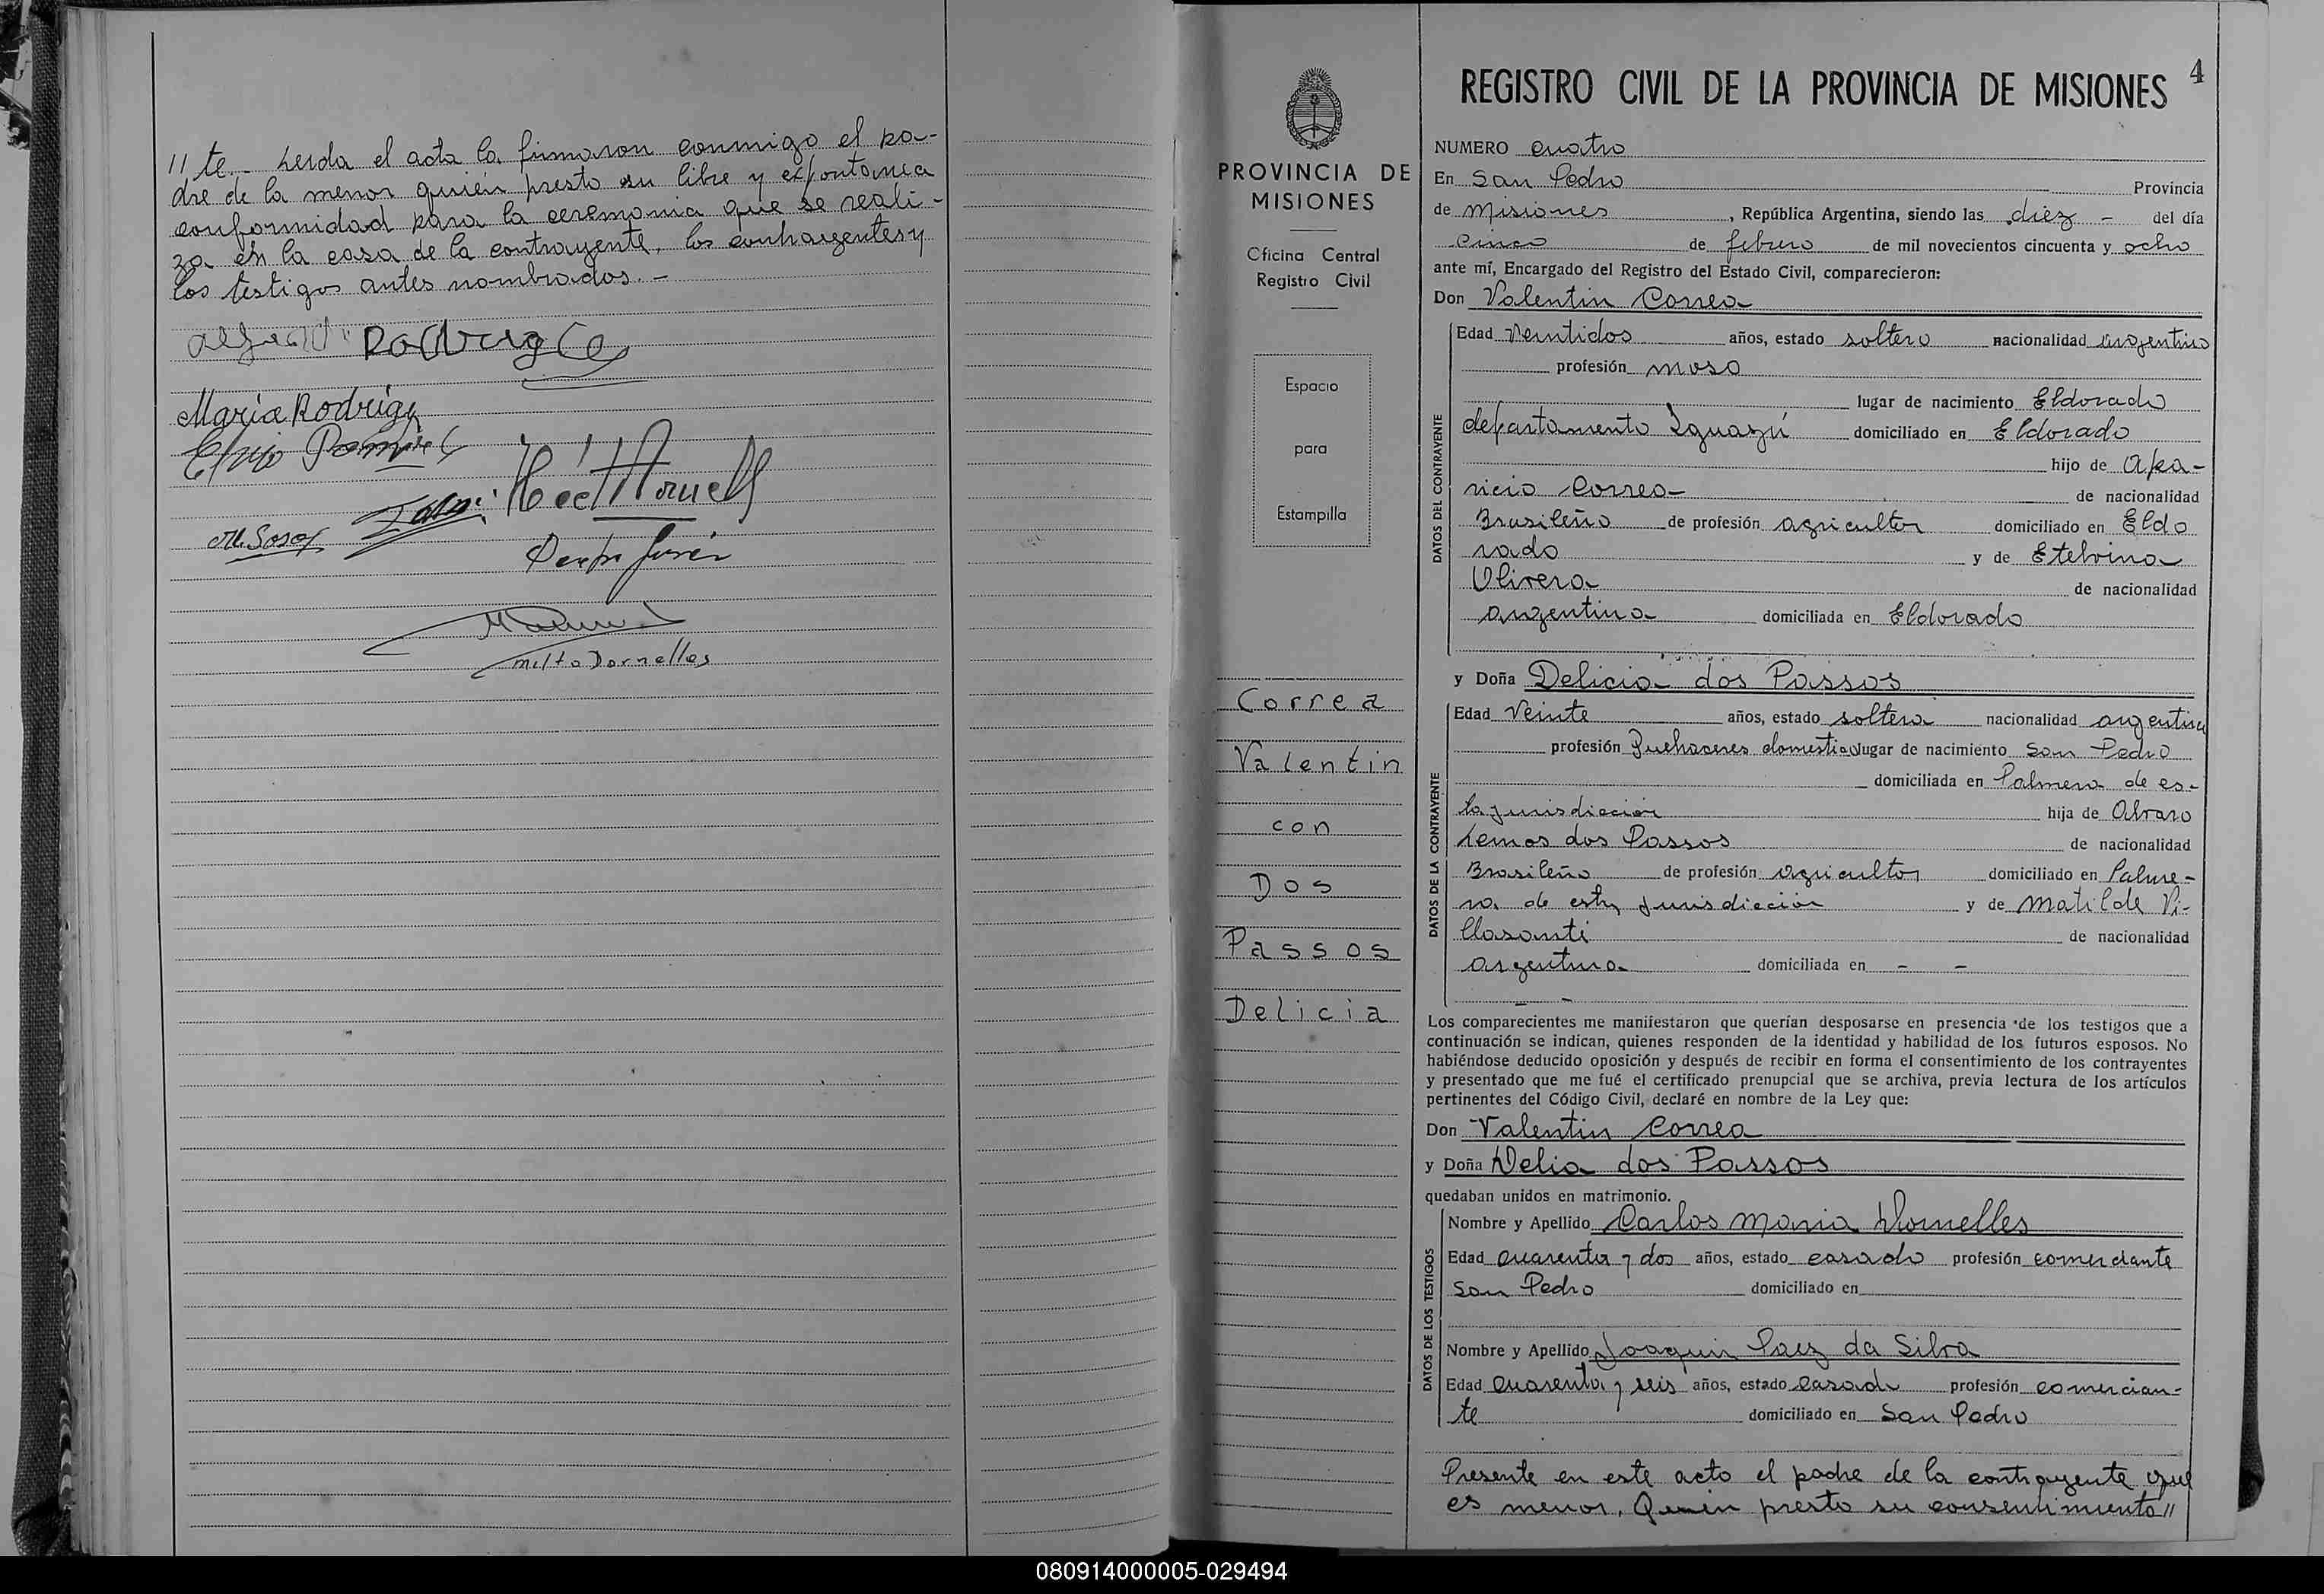 //te.- Leida el acta la firmaron conmigo el pa-
dre de la menor quién presto su libre y espontanea
conformidad para la ceremonia que se reali-
za en la casa de la contrayente, los contrayentes y
los testigos antes nombrados.-
Maria Rodrig
M. Sosa
Milto Dornelles
PROVINCIA DE
MISIONES
Oficina Central
Registro Civil
Espacio
para
Estampilla
Correa
Valentin
con
Dos
Passos
Delicia
REGISTRO CIVIL DE LA PROVINCIA DE MISIONES 4
NUMERO cuatro
En San Pedro Provincia
de Misiones, República Argentina, siendo las diez - del día
cinco de febrero de mil novecientos cincuenta y ocho
ante mí, Encargado del Registro del Estado Civil, comparecieron:
Don Valentin Correa
DATOS DEL CONTRAYENTE
Edad Veintidos años, estado soltero nacionalidad argentino
profesión moso
lugar de nacimiento Eldorado
departamento Iguazú domiciliado en Eldorado
hijo de Apa-
ricio Correa de nacionalidad
Brasileño de profesión agricultor domiciliado en Eldo
rado y de Etelvina
Olivera de nacionalidad
argentina domiciliada en Eldorado
y Doña Delicia dos Passos
DATOS DE LA CONTRAYENTE
Edad Veinte años, estado soltera nacionalidad argentina
profesión Quehaceres domestico lugar de nacimiento San Pedro
domiciliada en Palmera de es-
ta jurisdiccion hija de Alvaro
Lemos dos Passos de nacionalidad
Brasileño de profesión agricultor domiciliado en Palme-
ra de esta jurisdiccion y de Matilde Vi-
llasanti de nacionalidad
argentina domiciliada en - -
- -
Los comparecientes me manifestaron que querían desposarse en presencia de los testigos que a
continuación se indican, quienes responden de la identidad y habilidad de los futuros esposos. No
habiéndose deducido oposición y después de recibir en forma el consentimiento de los contrayentes
y presentado que me fué el certificado prenupcial que se archiva, previa lectura de los artículos
pertinentes del Código Civil, declaré en nombre de la Ley que:
Don Valentin Correa
y Doña Delia dos Passos
quedaban unidos en matrimonio.
DATOS DE LOS TESTIGOS
Nombre y Apellido Carlos Maria Dornelles
Edad cuarenta y dos años, estado casado profesión comerciante
San Pedro domiciliado en
Nombre y Apellido Joaquin Paez da Silva
Edad cuarenta y seis años, estado casado profesión comercian-
te domiciliado en San Pedro
Presente en este acto el padre de la contrayente que
es menor. Quién presto su consentimiento//
080914000005-029494